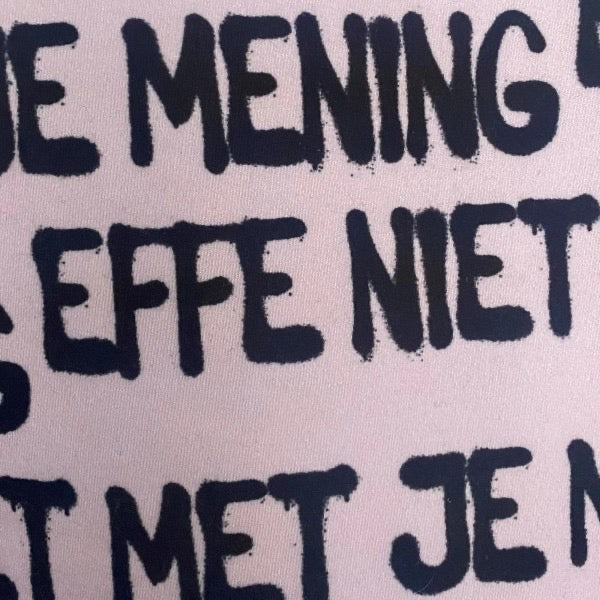 MENING
EFFE NIET
MET JE